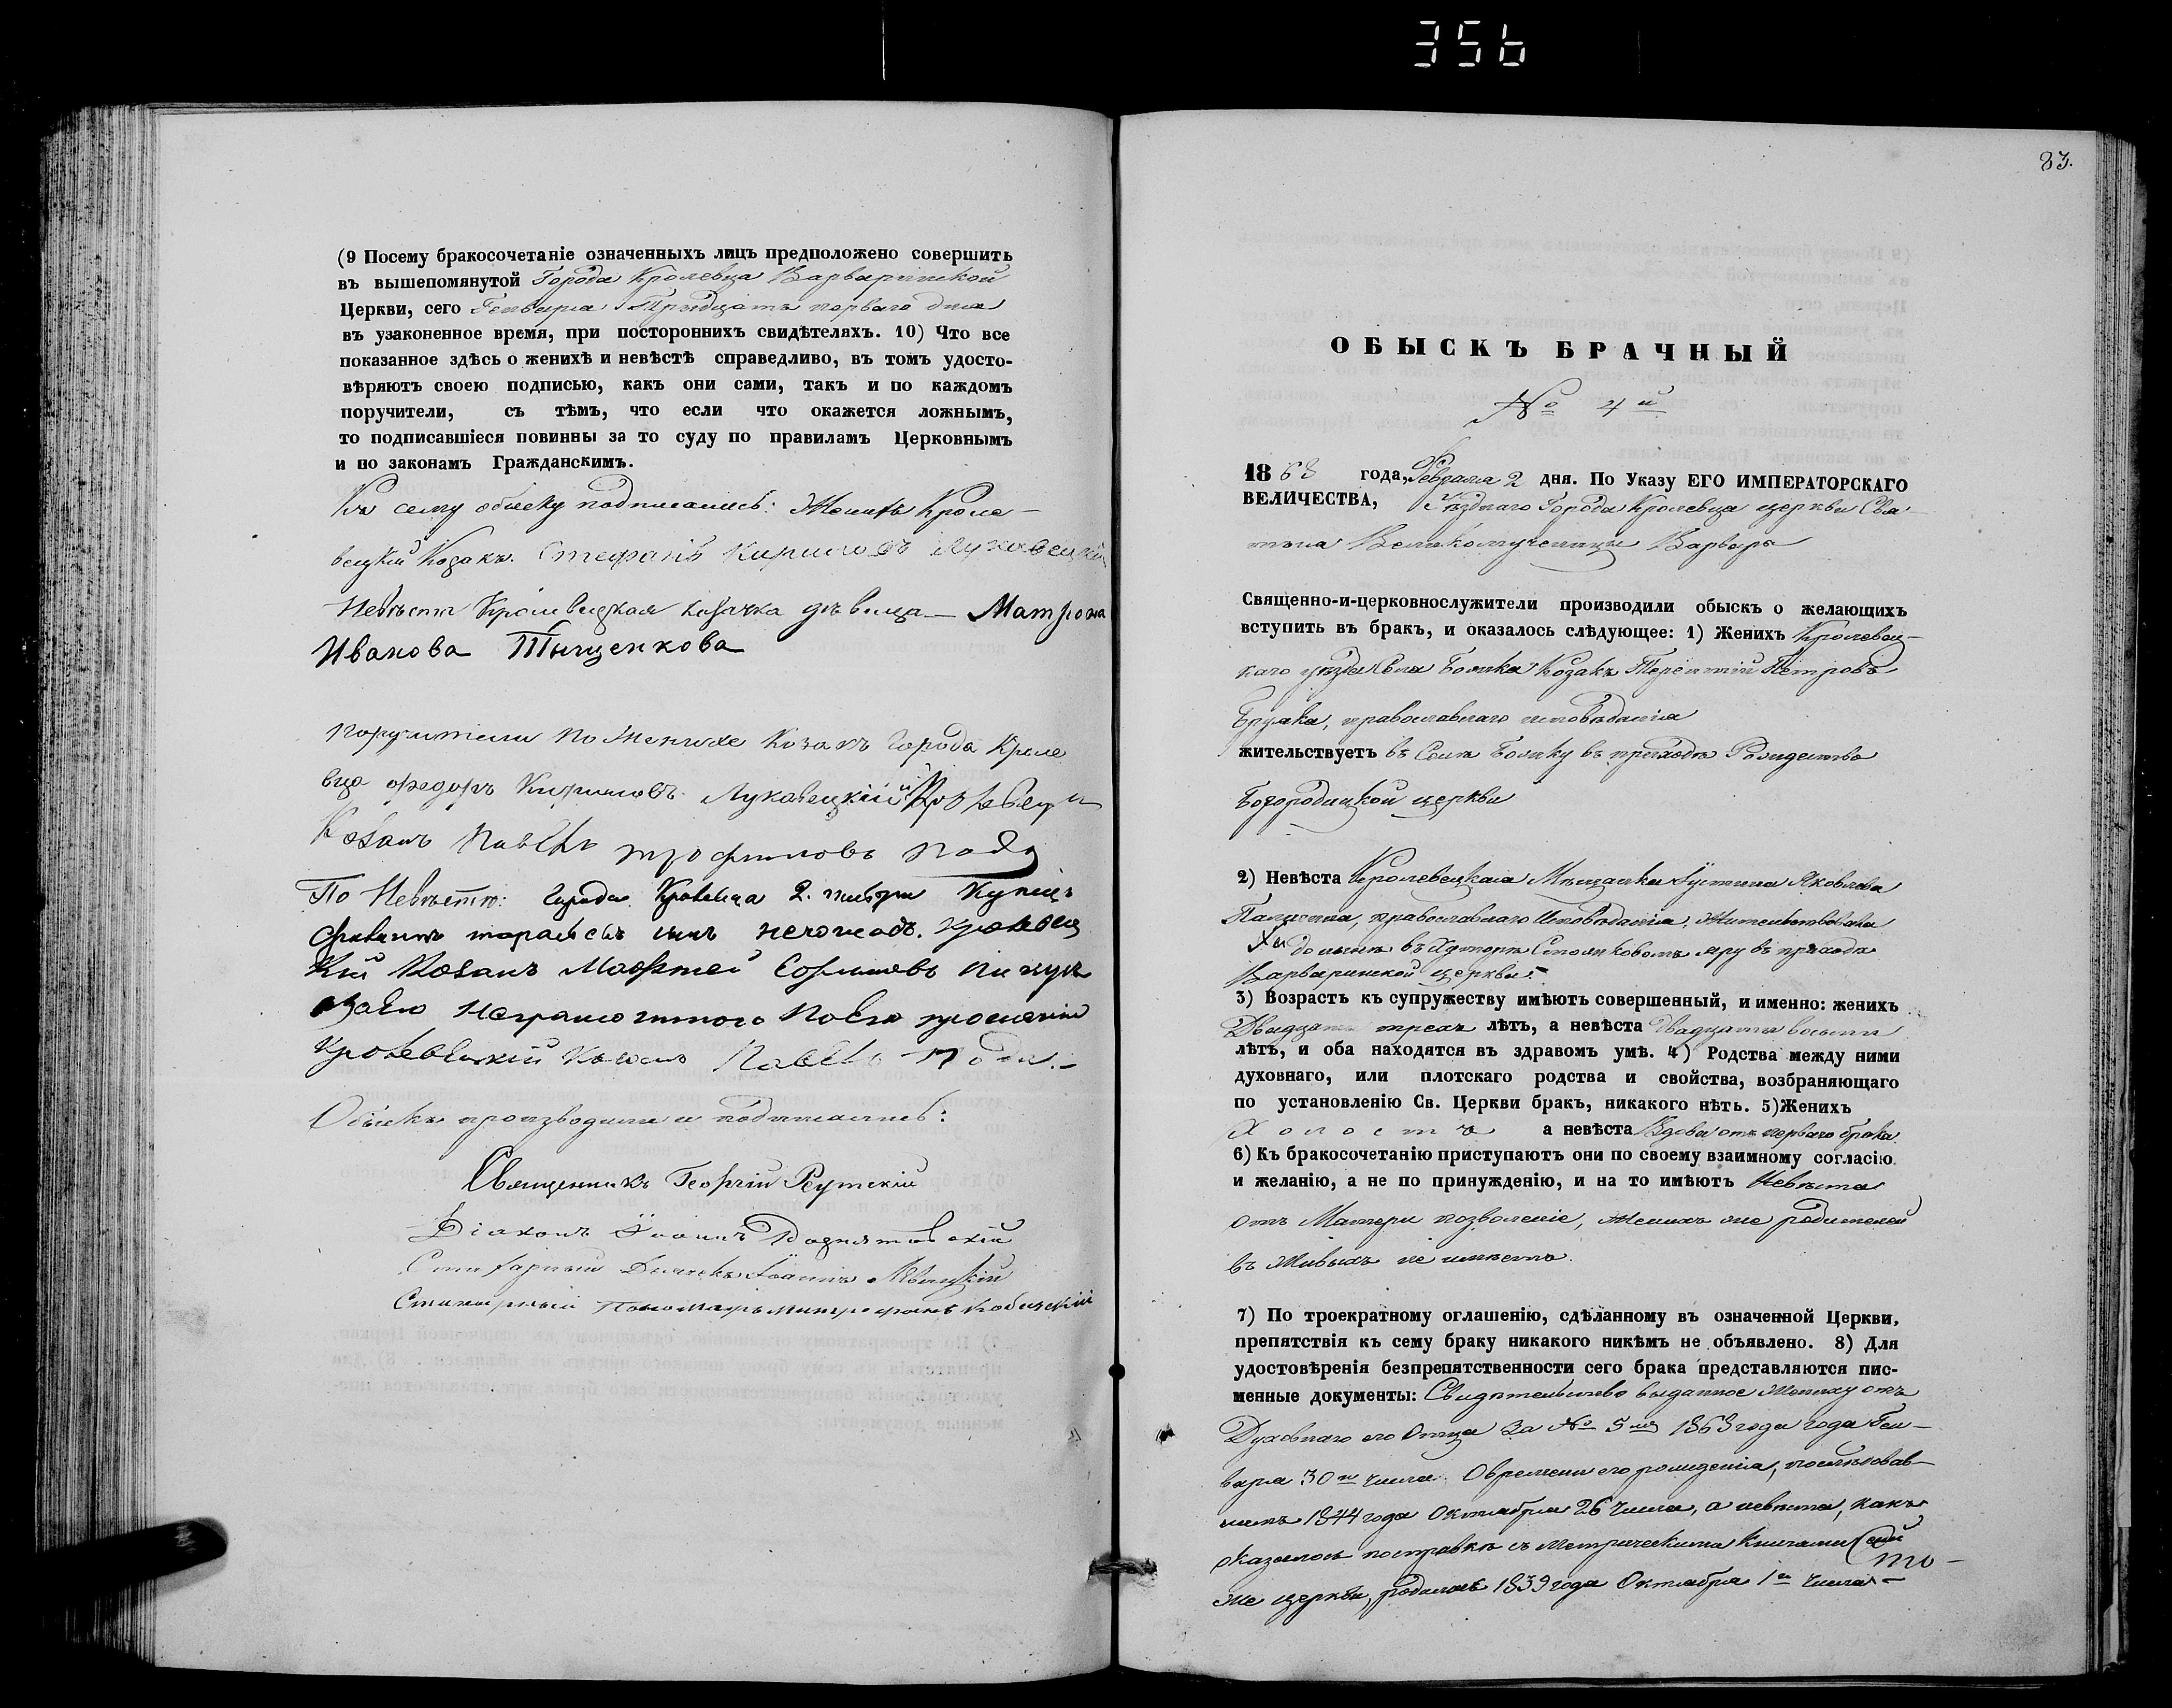 356
(9 Посему бракосочетаніе означенныхъ лицъ предположено совершить
въ вышепомянутой Города Кролевца Варваринской
Церкви, сего Генваря Тридцать перваго дня
въ узаконенное время, при постороннихъ свидѣтеляхъ. 10) Что все
показанное здѣсь о женихѣ и невѣстѣ справедливо, въ томъ удосто-
вѣряютъ своею подписью, какъ они сами, такъ и по каждомъ
поручители, съ тѣмъ, что если что окажется ложнымъ,
то подписавшіеся повинны за то суду по правиламъ Церковнымъ
и по законамъ Гражданскимъ.
Къ сему обыску подписались: Женихъ Кроле-
вецкій Козакъ Стефанъ Кириловъ Луковецкій
Невѣста Кролевецкая козачка дѣвица — Матрона
Иванова Тыщенкова
поручители по женихе козакъ города Кроле
вца федоръ Кириловъ Луковецкій
Козакъ Павелъ трофимовъ
По Невѣстѣ: города Кролевца 2. гильди Купецъ
Козакъ
неграмотного
кролевецкій Павелъ
Обыскъ производили и подписались:
Священникъ Георгій Реутскій
Діаконъ Іоаннъ
Стихарный Дьячекъ Іоаннъ Левицкій
Стихарный Пономарь Митрофанъ
83.
ОБЫСКЪ БРАЧНЫЙ
№ 4й
1863 года, Февраля 2 дня. По Указу ЕГО ИМПЕРАТОРСКАГО
ВЕЛИЧЕСТВА, Уѣзднаго Города Кролевца церкви Свя-
тыя Великомученицы Варвары
Священно-и-церковнослужители производили обыскъ о желающихъ
вступить въ бракъ, и оказалось слѣдующее: 1) Женихъ Кролевец-
каго уѣзда Села Козакъ Терентій Петровъ
православнаго исповѣданія
жительствуетъ въ Селѣ въ приходѣ Рождество
Богородицкой церкви
2) Невѣста Кролевецкая Мѣщанка Іустина Яковлева
православнаго Исповѣданія, Жительствовала
до нынѣ въ Хуторѣ въ приходѣ
Варваринской церкви.
3) Возрасть къ супружеству имѣютъ совершенный, и именно: женихъ
Двадцати трехъ лѣтъ, а невѣста двадцати восьми
лѣтъ, и оба находятся въ здравомъ умѣ. 4) Родства между ними
духовнаго, или плотскаго родства и свойства, возбраняющаго
по установленію Св. Церкви бракъ, никакого нѣтъ. 5) Женихъ
Холостъ а невѣста Вдова отъ перваго брака
6) Къ бракосочетанію приступаютъ они по своему взаимному согласію
и желанію, а не по принужденію, и на то имѣютъ Невѣста
отъ Матери позволеніе, Женихъ же родителей
въ живыхъ не имѣетъ.
7) По троекратному оглашенію, сдѣланному въ означенной Церкви,
препятствія къ сему браку никакого никѣмъ не объявлено. 8) Для
удостовѣренія безпрепятственности сего брака представляются пис-
менные документы: Свидѣтельство выданное Жениху отъ
Духовнаго его Отца за № 5мъ 1863 года года Ген-
варя 30го числа. О времени его рожденія, послѣдовав-
шемъ 1844 года Октября 26 числа, а невѣста, какъ
оказалось по справкѣ съ Метрическими Книгами сей
то-
же церкви, родилась 1839 года Октября 1го числа